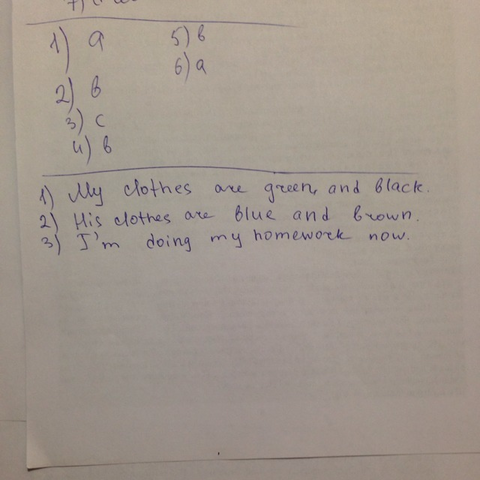 7)
1) a 5) b
6) a
2) b
3) c
4) b
1) My clothes are green, and black.
2) His clothes are blue and brown.
3) I'm doing my homework now.